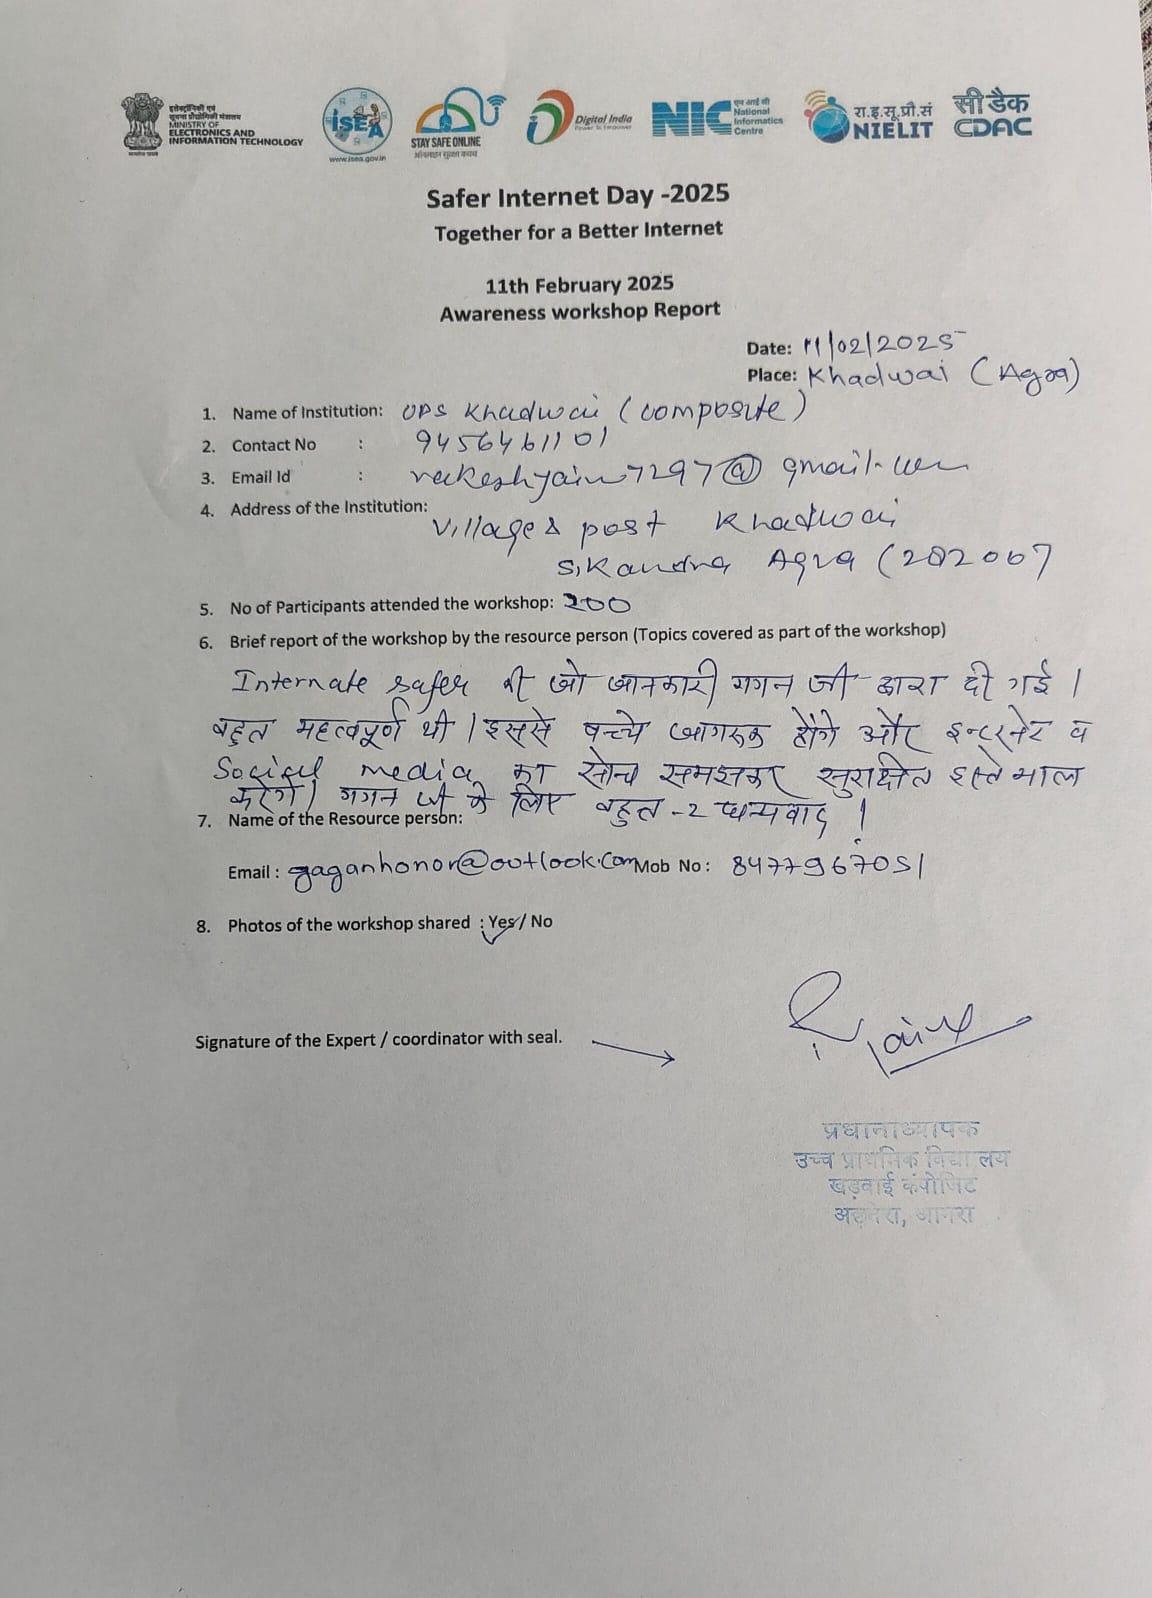 इलेक्ट्रॉनिकी एवं
सूचना प्रौद्योगिकी मंत्रालय
MINISTRY OF
ELECTRONICS AND
INFORMATION TECHNOLOGY
सत्यमेव जयते
ISEA
www.isea.gov.in
STAY SAFE ONLINE
ऑनलाइन सुरक्षा कवच
Digital India
Power To Empower
NIC
एन आई सी
National
Informatics
Centre
रा.इ.सू.प्रौ.सं
NIELIT
सी डैक
CDAC
Safer Internet Day -2025
Together for a Better Internet
11th February 2025
Awareness workshop Report
Date: 11/02/2025
Place: Khadwai (Agra)
1. Name of Institution: UPS Khadwai (composite)
2. Contact No : 9456461101
3. Email Id : rakeshjain7297@gmail.com
4. Address of the Institution: Village & post Khadwai
Sikandra Agra (282007
5. No of Participants attended the workshop: 200
6. Brief report of the workshop by the resource person (Topics covered as part of the workshop)
Internate safer की जो जानकारी गगन जी द्वारा दी गई।
बहुत महत्वपूर्ण थी। इससे बच्चे जागरूक होंगे और इन्टरनेट व
Social media का सोच समझकर सुरक्षित इस्तेमाल
करेंगे। गगन जी के लिए बहुत-2 धन्यवाद!
7. Name of the Resource person:
Email : gaganhonor@outlook.com Mob No : 8477967051
8. Photos of the workshop shared : Yes / No
Signature of the Expert / coordinator with seal.
R. Jain
प्रधानाध्यापक
उच्च प्राथमिक विद्यालय
खड़वाई कंपोजिट
अछनेरा, आगरा